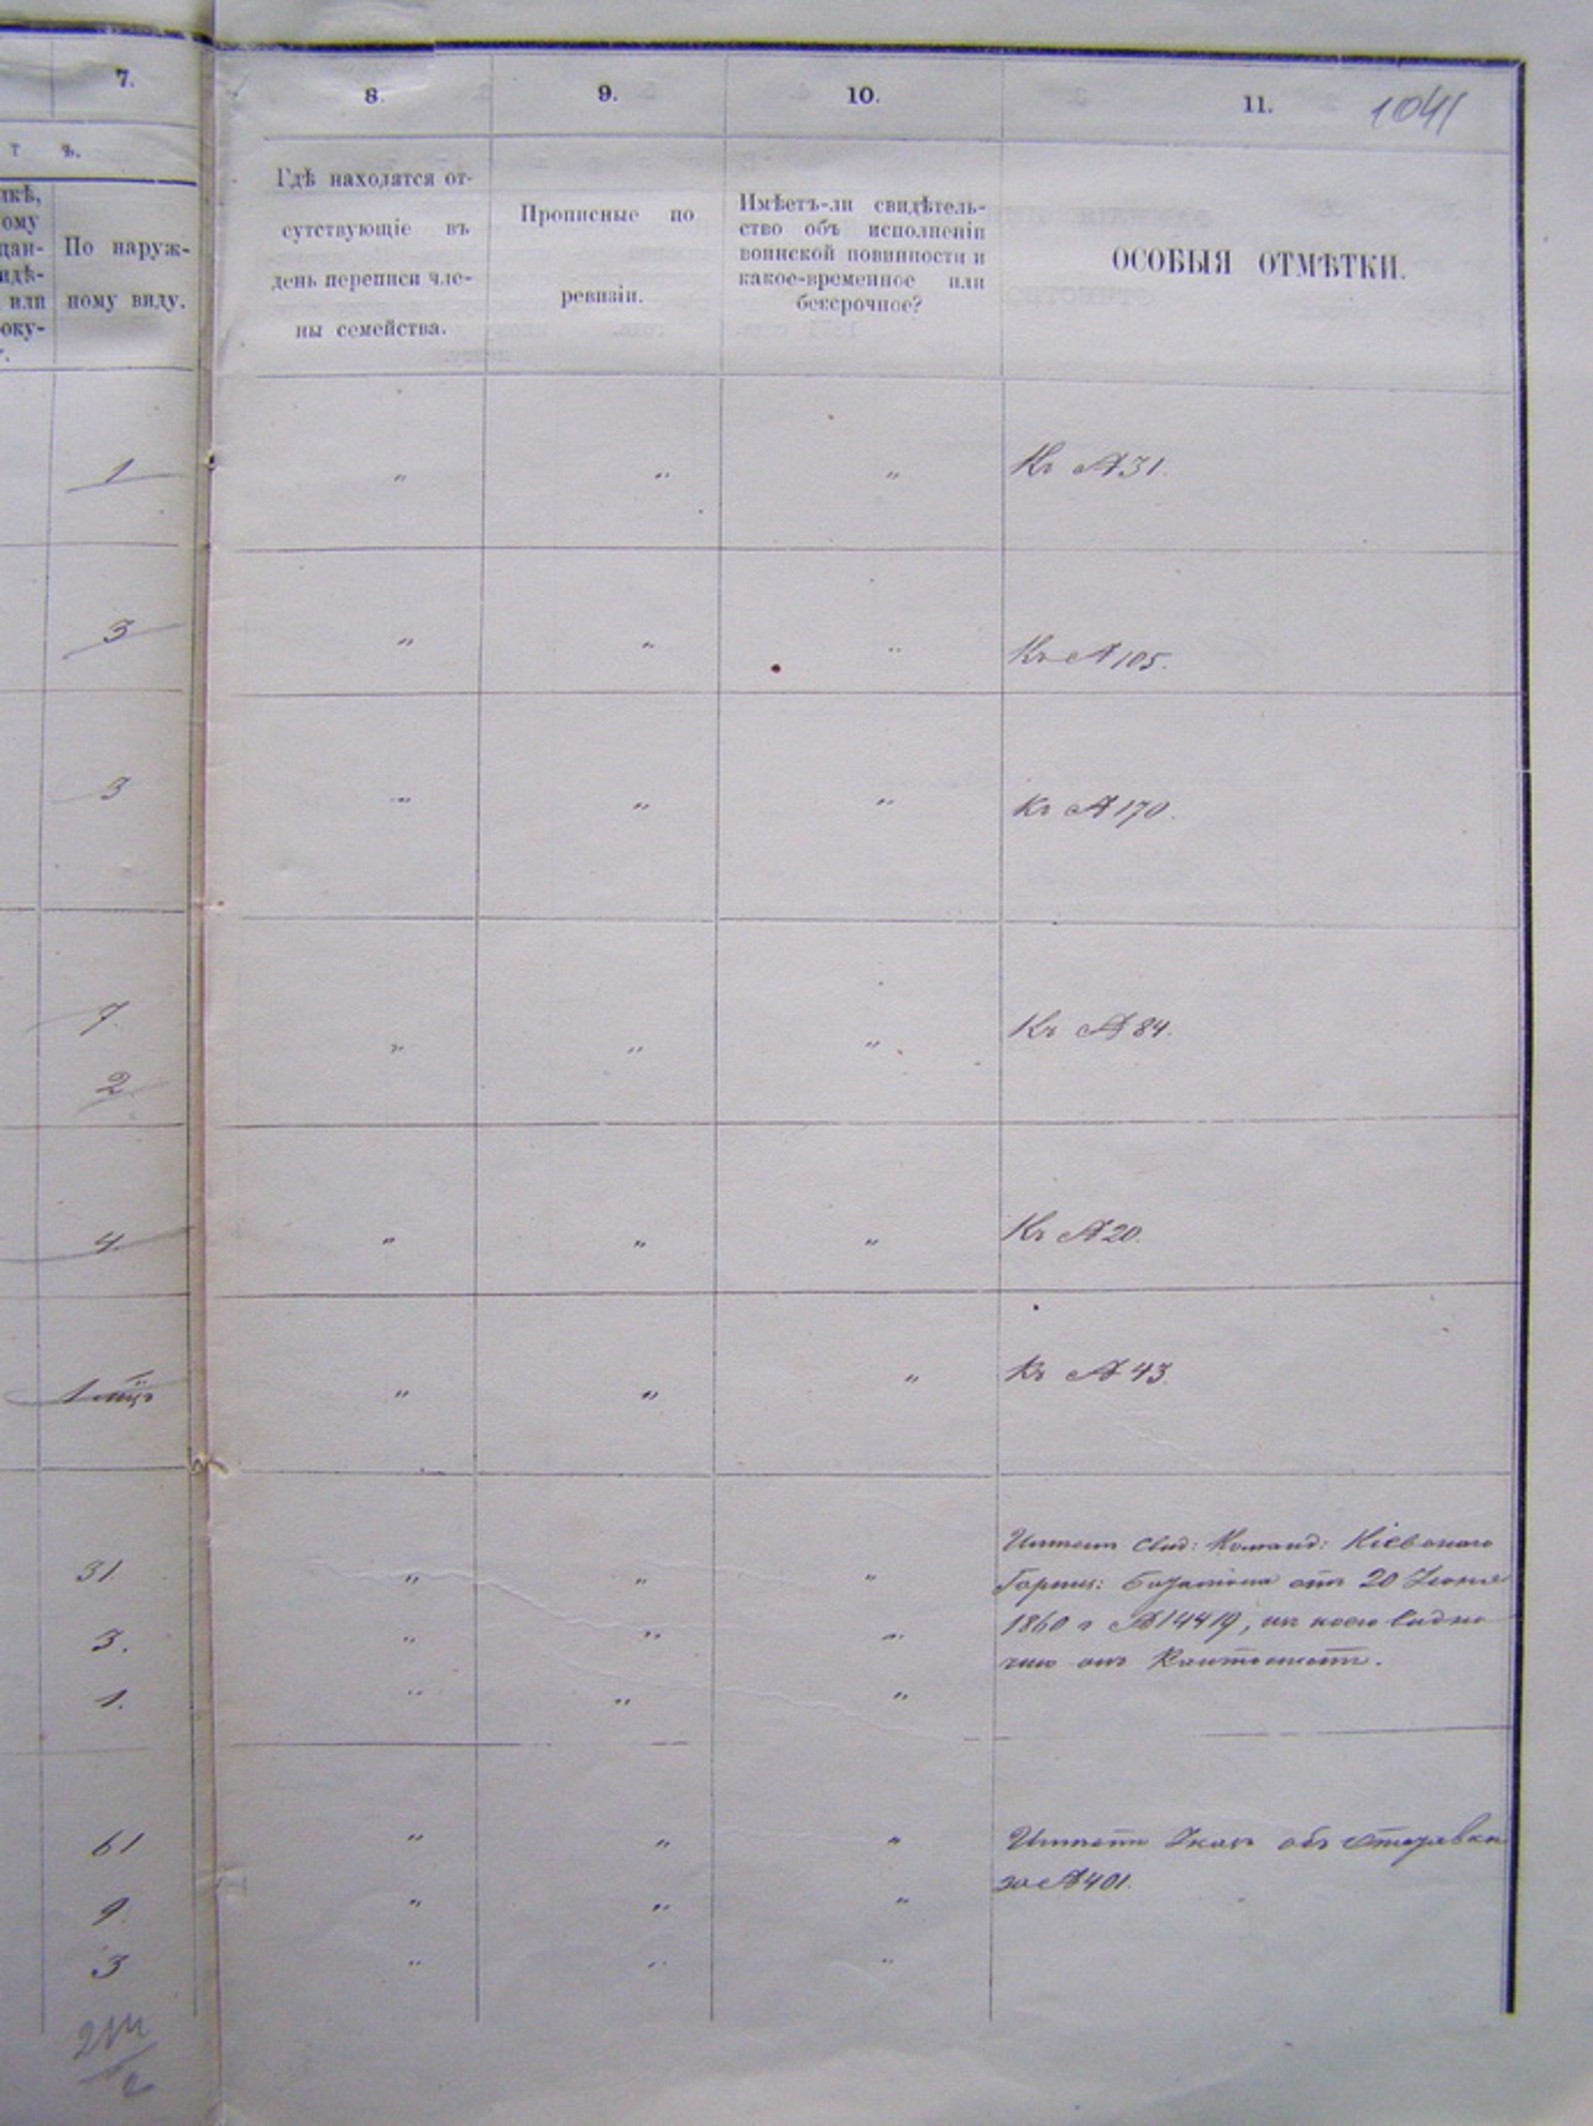 7.
8.
9.
10.
11.
1041
т ъ.
лкѣ,
ому
дан-
идѣ-
или
оку-
По наруж-
ному виду.
Гдѣ находятся от-
сутствующіе въ
день переписи чле-
ны семейства.
Прописные по
ревизіи.
Имѣетъ-ли свидѣтель-
ство объ исполненіи
воинской повинности и
какое-временное или
безсрочное?
ОСОБЫЯ ОТМѢТКИ.
1 " " " Къ № 31.
3 " " " Къ № 105.
3 " " " Къ № 170.
7. " " " Къ № 84.
2.
4. " " " Къ № 20.
1 мцъ " " " Къ № 43.
31. " " "
3. " " "
1. " " "
Имѣетъ Свид: Команд: Кіевскаго
Гарниз: Баталіона отъ 20 Іюня
1860 г № 14419, изъ коего видно
что онъ Кантонистъ.
61 " " "
9. " " "
3 " " "
Имѣетъ Указъ объ отставкѣ
за № 401.